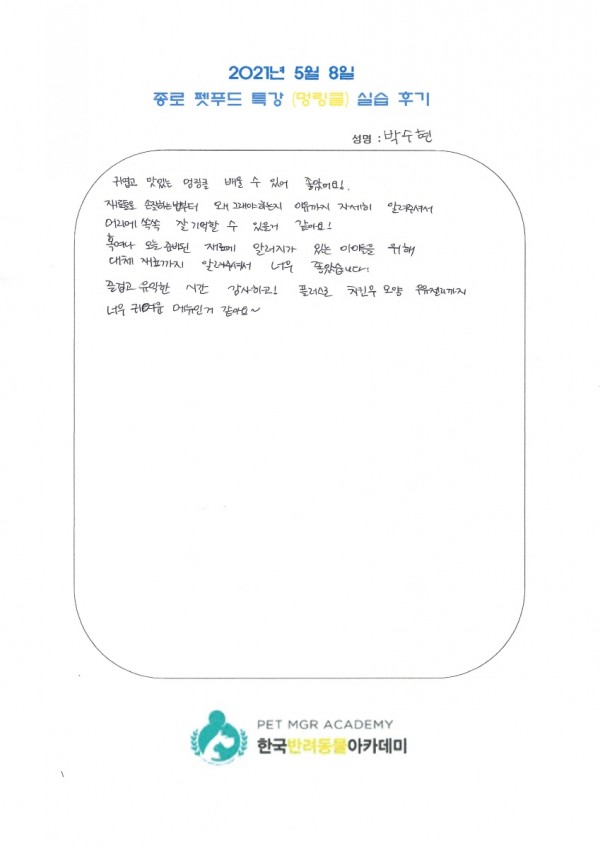 2021년 5월 8일
종로 펫푸드 특강 (멍링클) 실습 후기
성명 : 박수현
귀엽고 맛있는 멍링클 배울 수 있어 좋았어요!
재료들을 손질하는법부터 왜 그래야하는지 이유까지 자세히 알려주셔서
머리에 쏙쏙 잘 기억할 수 있을거 같아요!
혹여나 오늘 준비된 재료에 알러지가 있는 아이들을 위해
대체 재료까지 알려주셔서 너무 좋았습니다!
즐겁고 유익한 시간 감사하고! 플러스로 치킨무 모양 우유젤리까지
너무 귀여운 메뉴인거 같아요~
PET MGR ACADEMY
한국반려동물아카데미